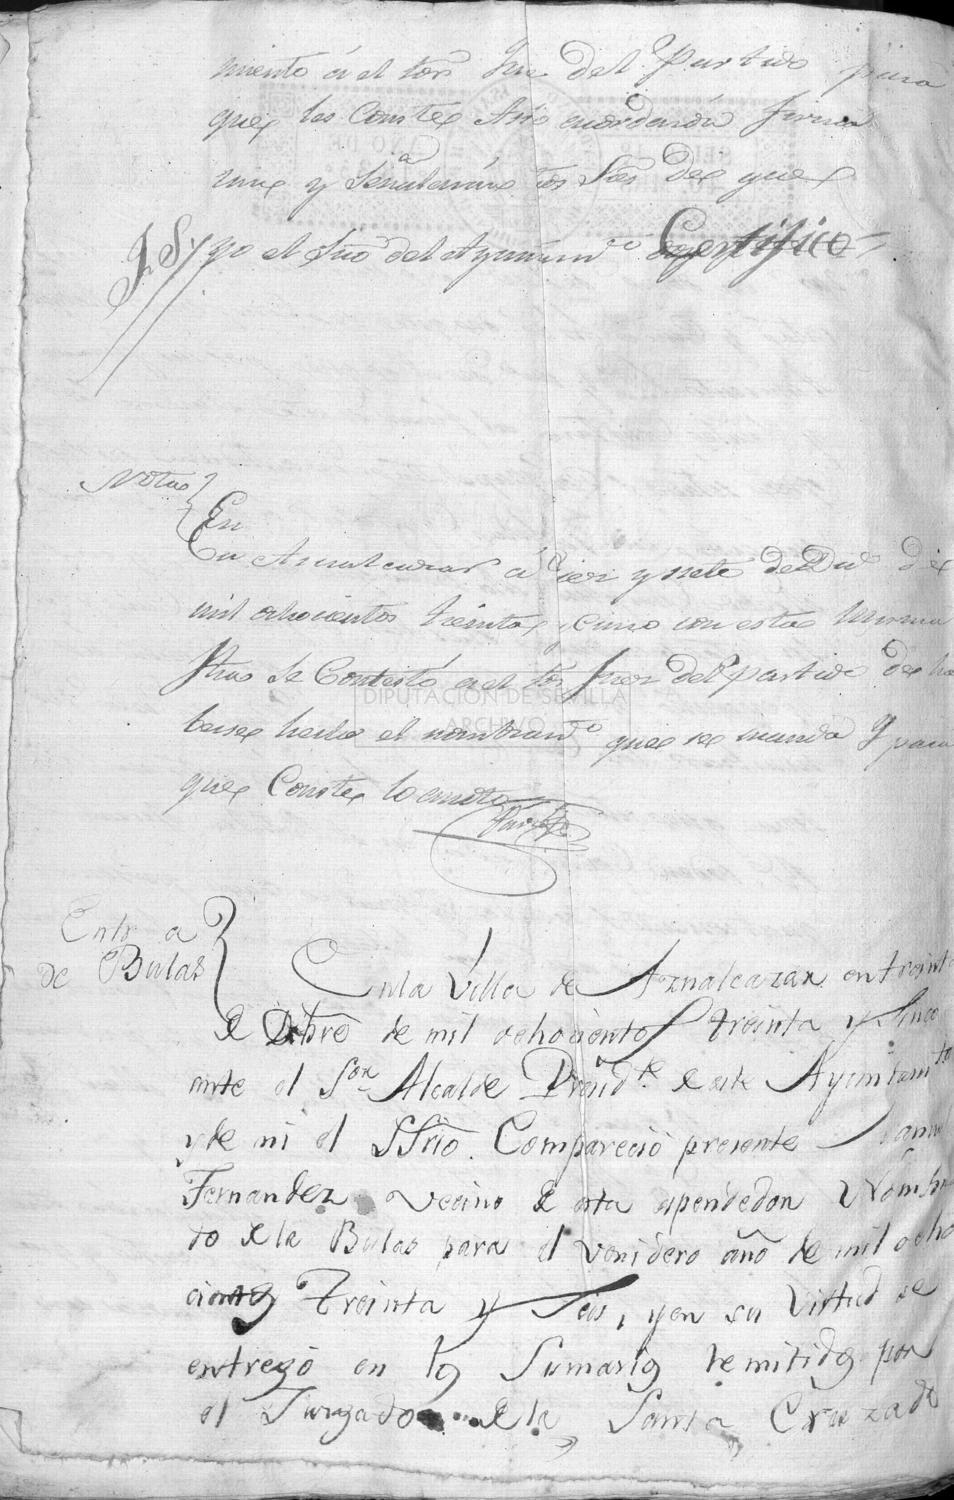 miento á el Sor Jue del Partido para
que Conste Asi acordarón firma
rone y señalarón los Sres de que
yo el Srio del Ayuntamto Certifico
Nota
En
En Aznalcazar á diez y siete de Dice de
mil ochocientos treinta y cinco con esta misma
fha se Contestó a el Sor Juez del Partido de ha
berse hecho el nombramto que se manda y para
que Conste lo anoto
DIPUTACIÓN DE SEVILLA
ARCHIVO
Entra
de Bulas
En la Villa de Aznalcazar en treinta
de Dbre de mil ochociento treinta y Sinco
ante el Sor Alcalde Presidte de este Ayuntamto
y de mi el SSrio. Compareció presente
Fernandez vecino de esta espendedor Nombra
do de la Bulas para el venidero año de mil ocho
cientos treinta y Seis, y en su Virtud se
entregó en los Sumarios remitidos por
el Jurgado de la Santa Cruzada